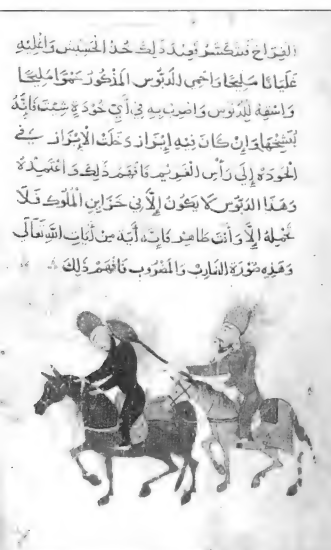 الفراخ فتكسر فعند ذلك خذ الحسيس واغليه
غليانا مليحا واحمي الدبوس المذكور سهوا مليحا
واسقه للدبوس واضرب به في اي خودة شئت فانه
وان كان فيه ابزار دخلت الابزار في
الخودة الى رأس الغريم فافهم ذلك واعتمده
وهذا الدبوس لا يكون الا في خزاين الملوك فلا
تحمله الا وانت طاهر فانه آية من آيات الله تعالى
وهذه صورة الضارب والمضروب فافهم ذلك